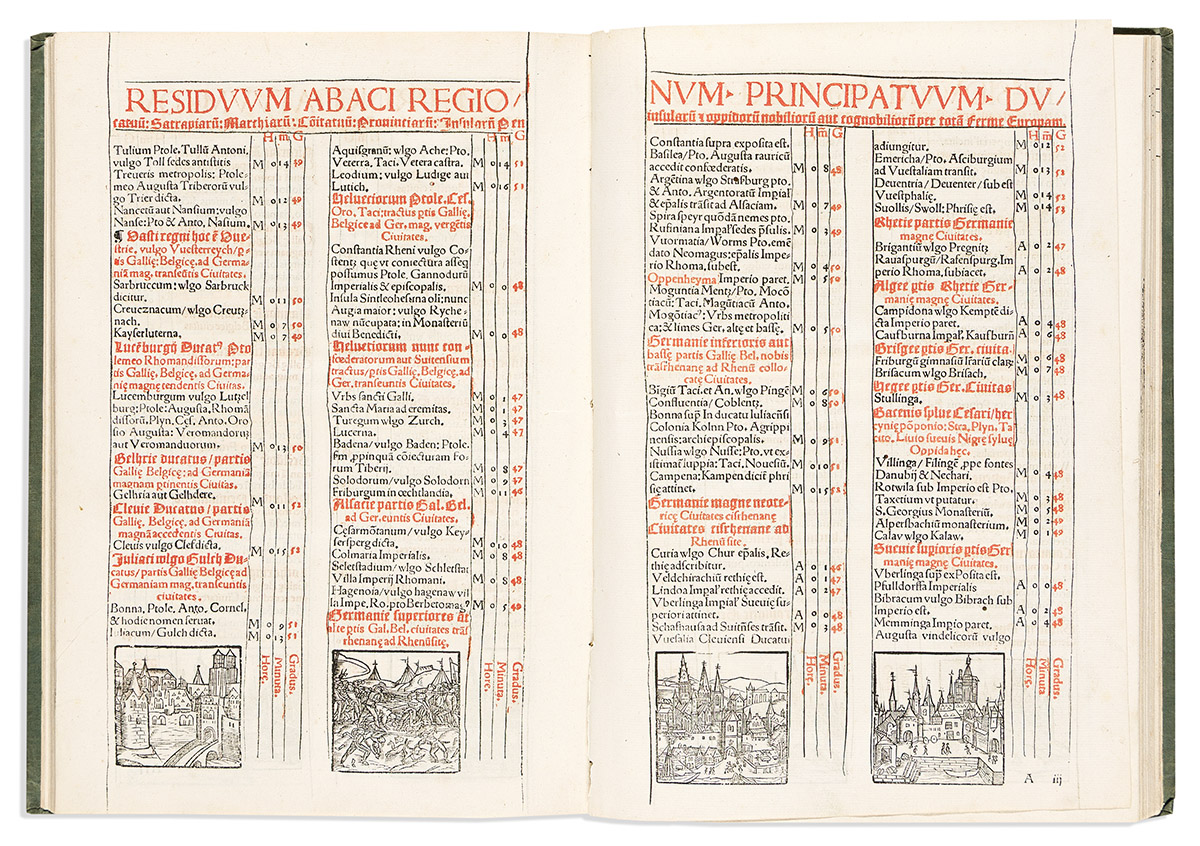 RESIDVVM ABACI REGIO/
catuũ: Satrapiarũ: Marchiarũ: Cõitatuũ: Prouinciarũ: Insularũ Pen
H m G
Tulium Ptole. Tullũ Antoni.
vulgo Toll sedes antistitis M 0 14 49
Treueris metropolis; Ptole-
meo Augusta Triberorũ vul-
go Trier dicta. M 0 12 49
Nancetũ aut Nansium; vulgo
Nanse: Pto & Anto. Nasium. M 0 13 49
¶ Vasti regni hoc ẽ Vue-
strie, vulgo Vuesterreych/p-
tis Gallię: Belgicę, ad Germa-
niã mag. transeũtis Ciuitates.
Sarbruccum: wlgo Sarbruck
dicitur. M 0 11 50
Creucznacum/wlgo Creutz-
nach. M 0 7 50
Kayserluterna. M 0 7 49
Lucẽburgũ Ducat9 Pto
lemeo Rhomandissorum: par
tis Gallię, Belgicę, ad Germa-
nię magnę tendentis Ciuitas.
Lucemburgum vulgo Lutzel
burg: Ptole: Augusta, Rhomã
dissorũ. Plyn. Cęs. Anto. Oro
sio Augusta: Veromandorũ
aut Veromanduorum. M 0 13 50
Gelhrie ducatus/partis
Gallię Belgicę: ad Germaniã
magnam ptinentis Ciuitas.
Gelhria aut Gelhdere. M 0 11 52
Cleuie Ducatus/partis
Gallię, Belgicę, ad Germaniã
magnã accedentis Ciuitas.
Cleuis vulgo Clefdicta. M 0 15 52
Juliaci wlgo Gulch Du-
catus/partis Gallię Belgicę ad
Germaniam mag, transeuntis
ciuitates.
Bonna, Ptole, Anto, Cornel,
& hodie nomen seruat, M 0 9 51
Iuliacum/Gulch dicta. M 0 13 51
Horę.
Minuta.
Gradus.
H m G
Aquisgranũ: wlgo Ache; Pto.
Veterra. Taci. Vetera castra. M 0 14 51
Leodium; vulgo Ludige aut
Lutich. M 0 16 51
Heluectiorum Ptole. Ces.
Oro. Taci; tractus ptis Gallię,
Belgicę ad Ger, mag, vergẽtis
Ciuitates.
Constantia Rheni vulgo Co-
stentz quę vt coniectura asseq
possumus Ptole, Gannodurũ
Imperialis & episcopalis. M 0 0 48
Insula Sintleohesina oli; nunc
Augia maior; vulgo Ryche-
naw nũcupata; in Monasteriũ
diui Benedicti. M 0 0 48
Heluectiorum nunc con-
fœderatorum aut Suitensium
tractus/ptis Gallię, Belgicę, ad
Ger, transeuntis Ciuitates.
Vrbs sancti Galli. M 0 1 47
Sancta Maria ad eremitas. M 0 1 47
Turegum wlgo Zurch. M 0 3 47
Lucerna. M 0 4 47
Badena/vulgo Baden; Ptole.
fm ,ppinquã cõiecturam Fo-
rum Tiberij. M 0 8 47
Solodorum/vulgo Solodorn M 0 9 47
Friburgum in œchtlandia. M 0 11 46
Alsacie partis Gal. Bel.
ad Ger, euntis Ciuitates.
Cęsarmõtanum/vulgo Key-
sersperg dicta. M 0 10 48
Colmaria Imperialis. M 0 8 48
Selestadium/wlgo Schlestat
Villa Imperij Rhomani. M 0 8 48
Hagenoia/vulgo hagenaw vil
la Impe, Ro: pto Berbetomag9 M 0 5 49
Germanie superiores aũt
alte ptis Gal. Bel. ciuitates trãs
rhenanę ad Rhenũ sitę.
Horę.
Minuta.
Gradus.
NVM· PRINCIPATVVM· DV/
insularũ & oppidorũ nobiliorũ aut cognobiliorũ per totã Ferme Europam.
H m G
Constantia supra exposita est.
Basilea/Pto. Augusta rauricũ
accedit confœderatis. M 0 8 48
Argẽtina wlgo Strasburg pto.
& Anto. Argentoratũ Impial
& epalis trãsit ad Alsaciam. M 0 7 49
Spira speyr quõdã nemes pto.
Rufiniana Impal' sedes psulis. M 0 3 49
Vuormatia/Worms Pto. emẽ
dato Neomagus; epalis Impe-
rio Rhoma, subest. M 0 4 50
Oppenheyma Imperio paret. M 0 5 50
Moguntia Mentz/Pto. Mocõ
tiacũ; Taci. Magũtiacũ Anto.
Mogũtiac9: Vrbs metropoliti
ca; & limes Ger, altę et bassę. M 0 5 50
Germanie inferioris aut
bassę partis Gallię Bel, nobis
trãsrhenanę ad Rhenũ collo-
catę Ciuitates.
Bigiũ Taci. et An. wlgo Pingẽ M 0 6 50
Confluentia/Coblentz. M 0 8 50
Bonna sup In ducatu Iuliacẽsi
Colonia Kolnn Pto, Agrippi
nensis: archiepiscopalis. M 0 9 51
Nussia wlgo Nusse; Pto. vt ex-
istimat Iuppia; Taci, Nouesiũ. M 0 10 51
Campena; Kampen dicit phri
się attinet. M 0 15 52
Germanie magne neote-
ricę Ciuitates cisrhenanę
Ciuitates cisrhenane ad
Rhenũ sitę.
Curia wlgo Chur epalis, Re-
thię adscribitur. A 0 1 46
Veldchirachiũ rethię est. A 0 1 47
Lindoa Impal' rethię accubat A 0 2 47
Vberlinga Impial' Sueuię su-
periori attinet. A 0 0 48
Schafhausa ad Suitẽses trãsit. M 0 3 48
Vuesalia Cleuiensi Ducatui
Horę.
Minuta.
Gradus.
H m G
adiungitur. M 0 12 52
Emericha/Pto. Asciburgium
ad Vuestaliam transit. M 0 13 52
Deuentria/Deuenter/sub est
Vuestphalię. M 0 14 52
Suollis/Swoll; Phrisię est. M 0 14 53
Rhetie partis Germanie
magnę Ciuitates.
Brigantiũ wlgo Pregnitz A 0 2 47
Rauaspurgũ/Rafenspurg. Im
perio Rhoma, subiacet. A 0 2 48
Algee ptis Rhetie Ger-
manię magnę Ciuitates.
Campidona wlgo Kemptẽ di-
cta Imperio paret. A 0 4 48
Caufburna Impal'. Kaufburñ A 0 6 48
Brisgee ptis Ger. ciuita.
Friburgũ gimnasiũ Irariũ clarę M 0 6 48
Brisacum wlgo Brisach. M 0 7 48
Hegee ptis Ger. Ciuitas
Stullinga. M 0 3 48
Bacenis sylue Cesari/her
cynię põponio: Stra, Plyn, Ta
cito, Liuio sueuis Nigrę syluę
Oppida hęc.
Villinga/Filingẽ ,ppe fontes
Danubij & Nechari. M 0 4 48
Rotwila sub Imperio est Pto.
Taxetium vt putatur. M 0 3 48
S. Georgius Monasteriũ. M 0 5 48
Alpersbachiũ monasterium. M 0 2 48
Calav wlgo Kalaw. M 0 1 49
Sueuie supioris ptis Ger
manię magnę Ciuitates.
Vberlinga sup exPosita est.
Pfulldorffa Imperialis A 0 0 48
Bibracum vulgo Bibrach sub
Imperio est. A 0 2 48
Memminga Impio paret. A 0 4 48
Augusta vindelicorũ vulgo
Horę.
Minuta
Gradus.
A iij